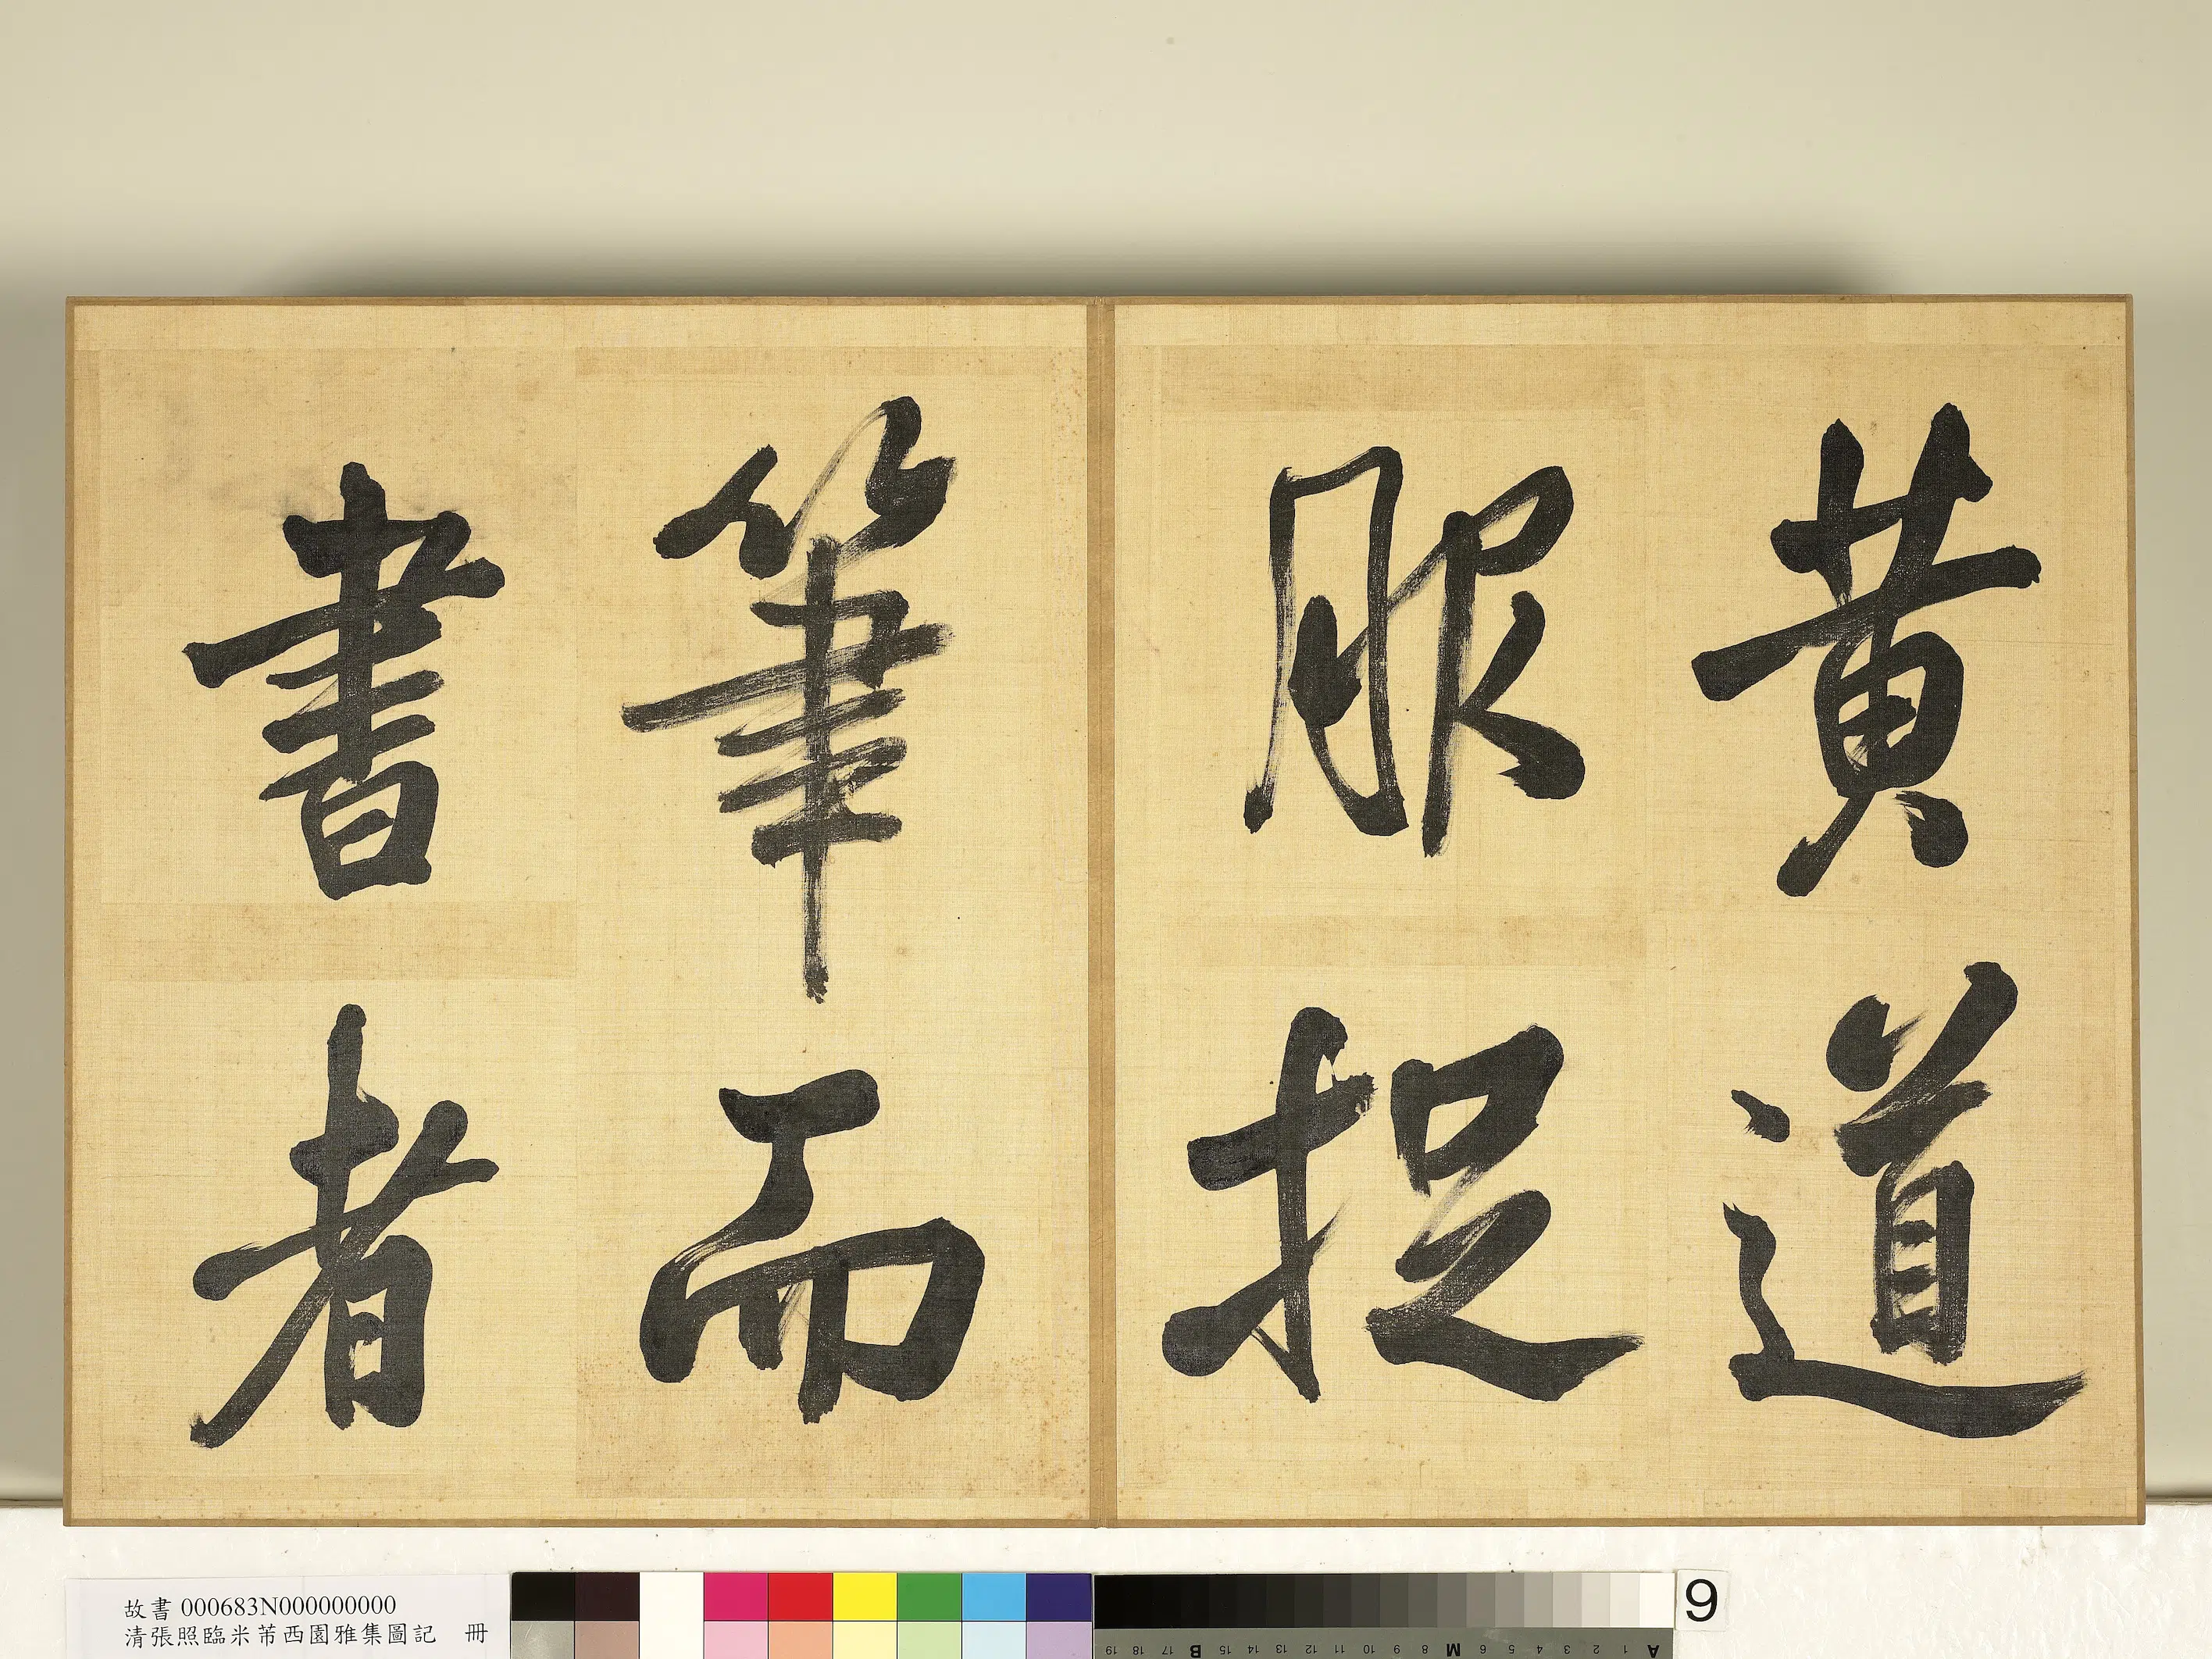 黃道
服捉
筆而
書者
故書 000683N000000000
清張照臨米芾西園雅集圖記 冊
9
19 18 17 B 15 14 13 12 11 10 9 8 M 6 5 4 3 2 1 A